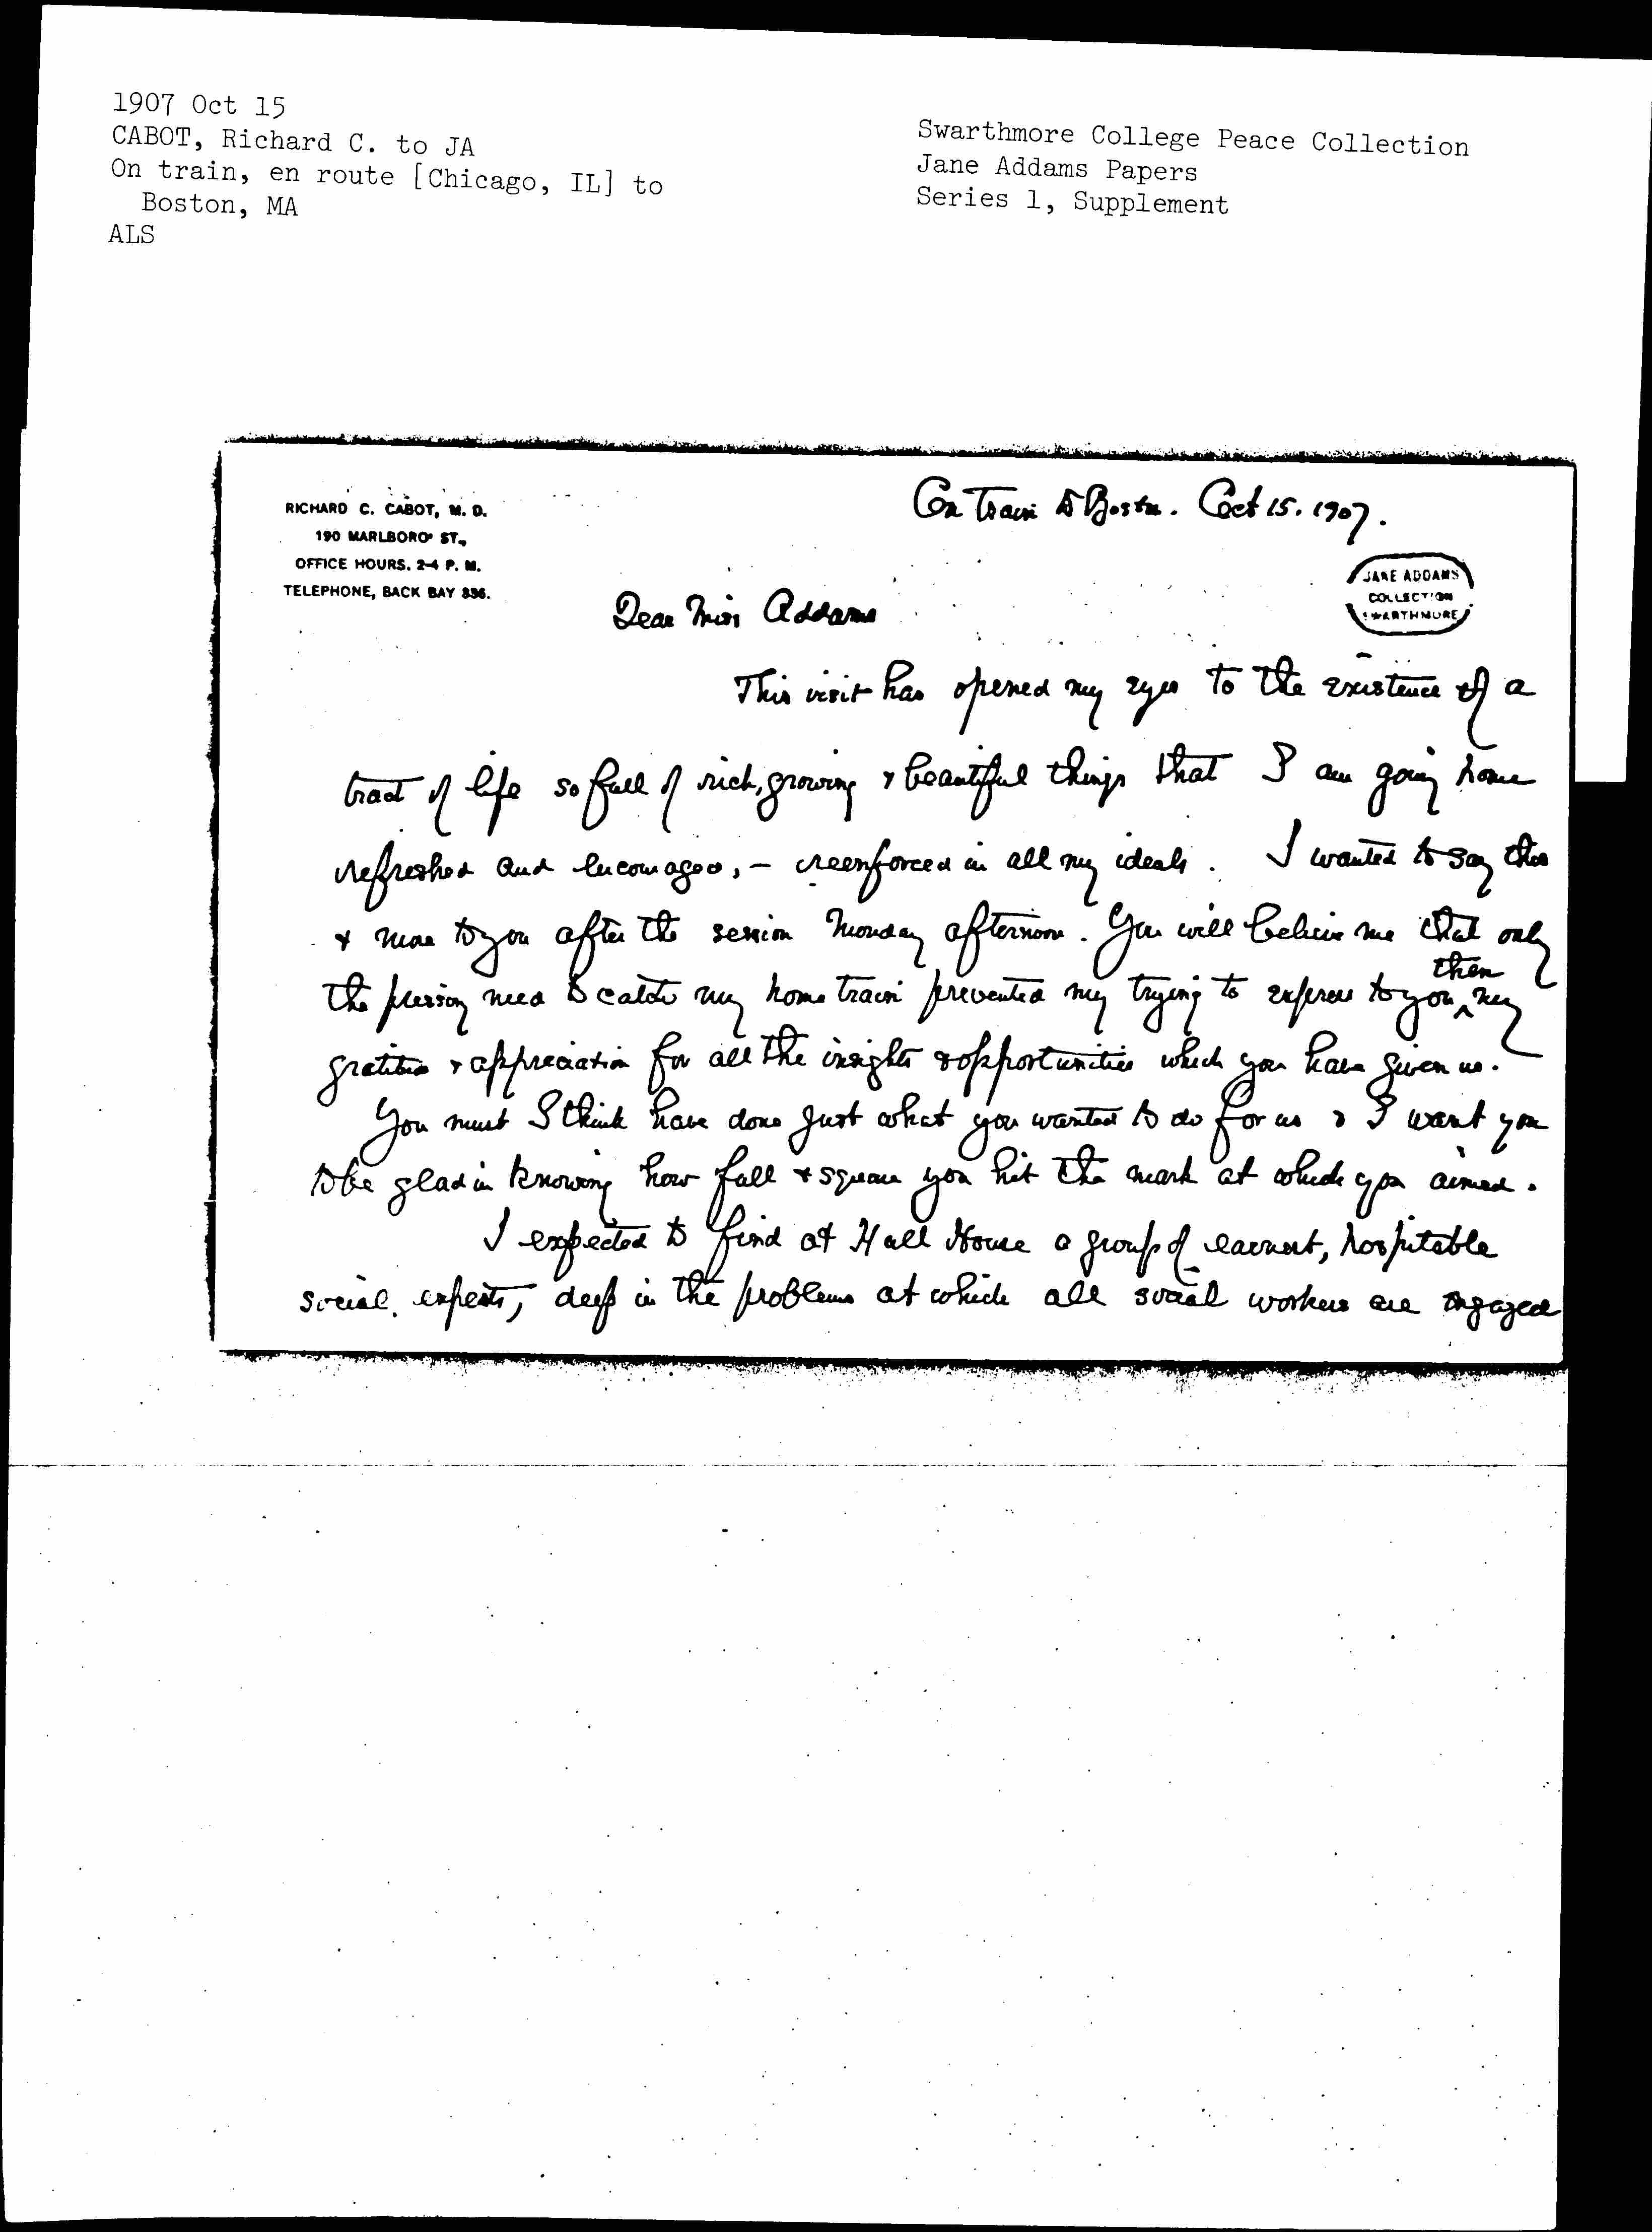 1907 Oct 15
CABOT, Richard C. to JA
On train, en route [Chicago, IL] to
Boston, MA
ALS
Swarthmore College Peace Collection
Jane Addams Papers
Series 1, Supplement
RICHARD C. CABOT, M. D.
190 MARLBORO' ST.,
OFFICE HOURS. 2-4 P. M.
TELEPHONE, BACK BAY 336.
On Train to Boston. Oct 15. 1907.
JANE ADDAMS
COLLECTION
SWARTHMORE
Dear Miss Addams
This visit has opened my eyes to the existence of a
tract of life so full of rich, growing & beautiful things that I am going home
refreshed and encouraged, – reenforced in all my ideals. I wanted to say this
& more to you after the session Monday afternoon. You will believe me that only
then
the pressing need to catch my home train prevented my trying to express to you ^ my
gratitude & appreciation for all the insights & opportunities which you have given us.
You must I think have done just what you wanted to do for us & I want you
to be glad in knowing how full & square you hit the mark at which you aimed.
I expected to find at Hull House a group of earnest, hospitable
social experts, deep in the problems at which all social workers are engaged